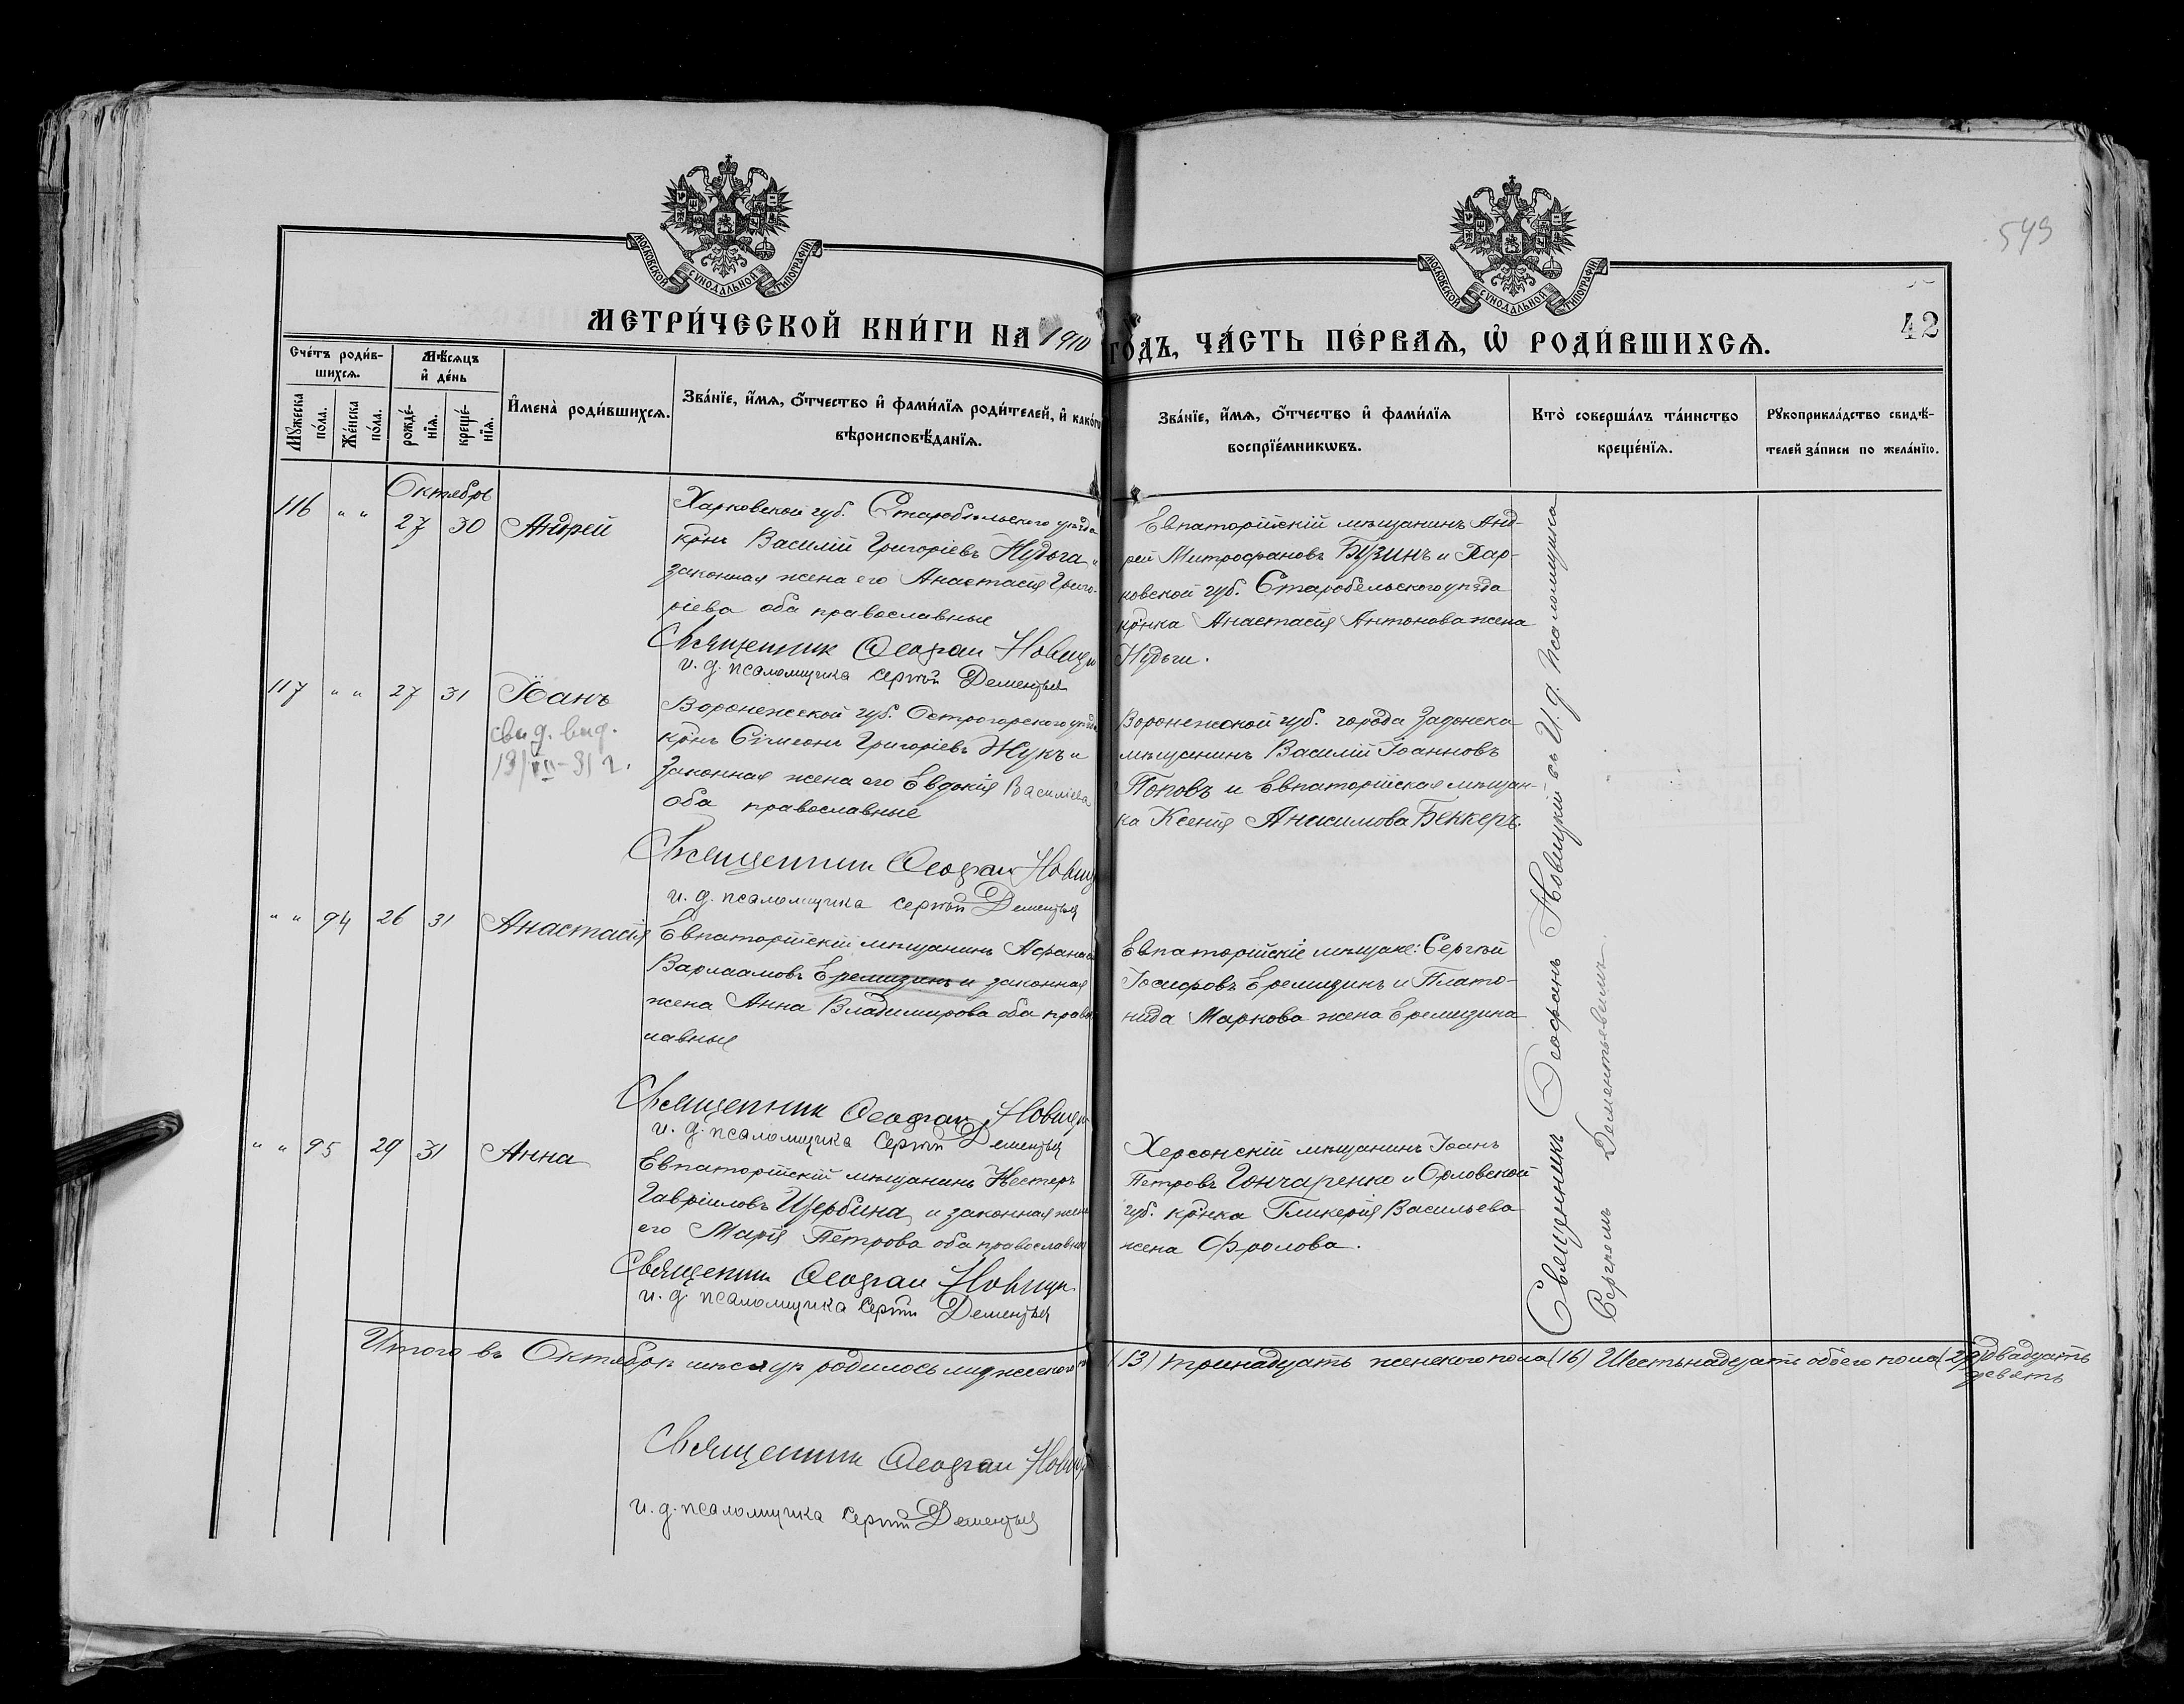 549
МОСКОВСКОЙ СѴНОДАЛЬНОЙ ТИПОГРАФІИ
МОСКОВСКОЙ СѴНОДАЛЬНОЙ ТИПОГРАФІИ
МЕТРИ́ЧЕСКОЙ КНИ́ГИ НА 1910
ГО́ДЪ, ЧА́СТЬ ПЕ́РВАѦ, Ѽ РОДИ́ВШИХСѦ.
42
Сче́тъ роди́в-
шихсѧ.
Мѣ́сѧцъ
и҆ де́нь
Мꙋ́жеска
по́ла.
Же́нска
по́ла.
рожде́-
нїѧ.
креще́-
нїѧ.
И҆мена̀ роди́вшихсѧ.
Зва́нїе, и҆́мѧ, ѻ҆́тчество и҆ фами́лїѧ роди́телей, и҆ како́гѡ
вѣроисповѣ́данїѧ.
Зва́нїе, и҆́мѧ, ѻ҆́тчество и҆ фами́лїѧ
воспрїе́мникѡвъ.
Кто̀ соверша́лъ та́инство
креще́нїѧ.
Рꙋкоприкла́дство свидѣ́-
телей за́писи по жела́нїю.
Октябрь
116 " " 27 30 Андрей
Харковской губ. Старобѣльского уѣзда
кр-нъ Василій Григоріевъ Нудьга и
законная жена его Анастасія Григо-
ріева оба православные
Священник Ѳеофан Новицк
и. д. псаломщика Сергѣй Дементьев
Евпаторійскій мѣщанинъ Анд-
рей Митрофановъ Бузинъ и Хар-
ковской губ. Старобельского уѣзда
кр-нка Анастасія Антонова жена
Нудьги.
117 " " 27 31 Іоанъ
свид. выд.
19/VII-31 г.
Воронежской губ. Острогорского уѣзда
кр-нъ Сімеонъ Григоріевъ Жукъ и
законная жена его Евдокія Василіева
оба православные
Священник Ѳеофан Новиц
и. д. псаломщика Сергѣй Дементьев
Воронежской губ. города Задонска
мѣщанинъ Василій Іоанновъ
Поповъ и Евпаторійская мѣщан-
ка Ксенія Анисимова Беккеръ.
" " 94 26 31 Анастасія
Евпаторійскій мѣщанинъ Афанасі
Варлаамовъ Еремизинъ и законная
жена Анна Владимирова оба правос
лавные
Священник Ѳеофан Новицк
и. д. псаломщика Сергѣй Дементьев
Евпаторійскіе мѣщане: Сергѣй
Іосифовъ Еремизинъ и Плато-
нида Маркова жена Еремизина
" " 95 29 31 Анна
Евпаторійскій мѣщанинъ Нестеръ
Гавріиловъ Щербина и законная жена
его Марія Петрова оба православные
Священник Ѳеофан Новицк
и. д. псаломщика Сергѣй Дементьев
Херсонскій мѣщанинъ Іоанъ
Петровъ Гончаренко и Орловской
губ. кр-нка Гликерія Васильева
жена Фролова.
Священникъ Ѳеофанъ Новицкій съ И. д. псаломщика
Сергѣемъ Дементьевымъ.
Итого въ Октябрѣ мѣсяцѣ родилось мужеского
(13) тринадцать женского пола (16) Шестьнадцать обоего пола (29) двадцать
девять
Священник Ѳеофан Новицк
и. д. псаломщика Сергѣй Дементьев